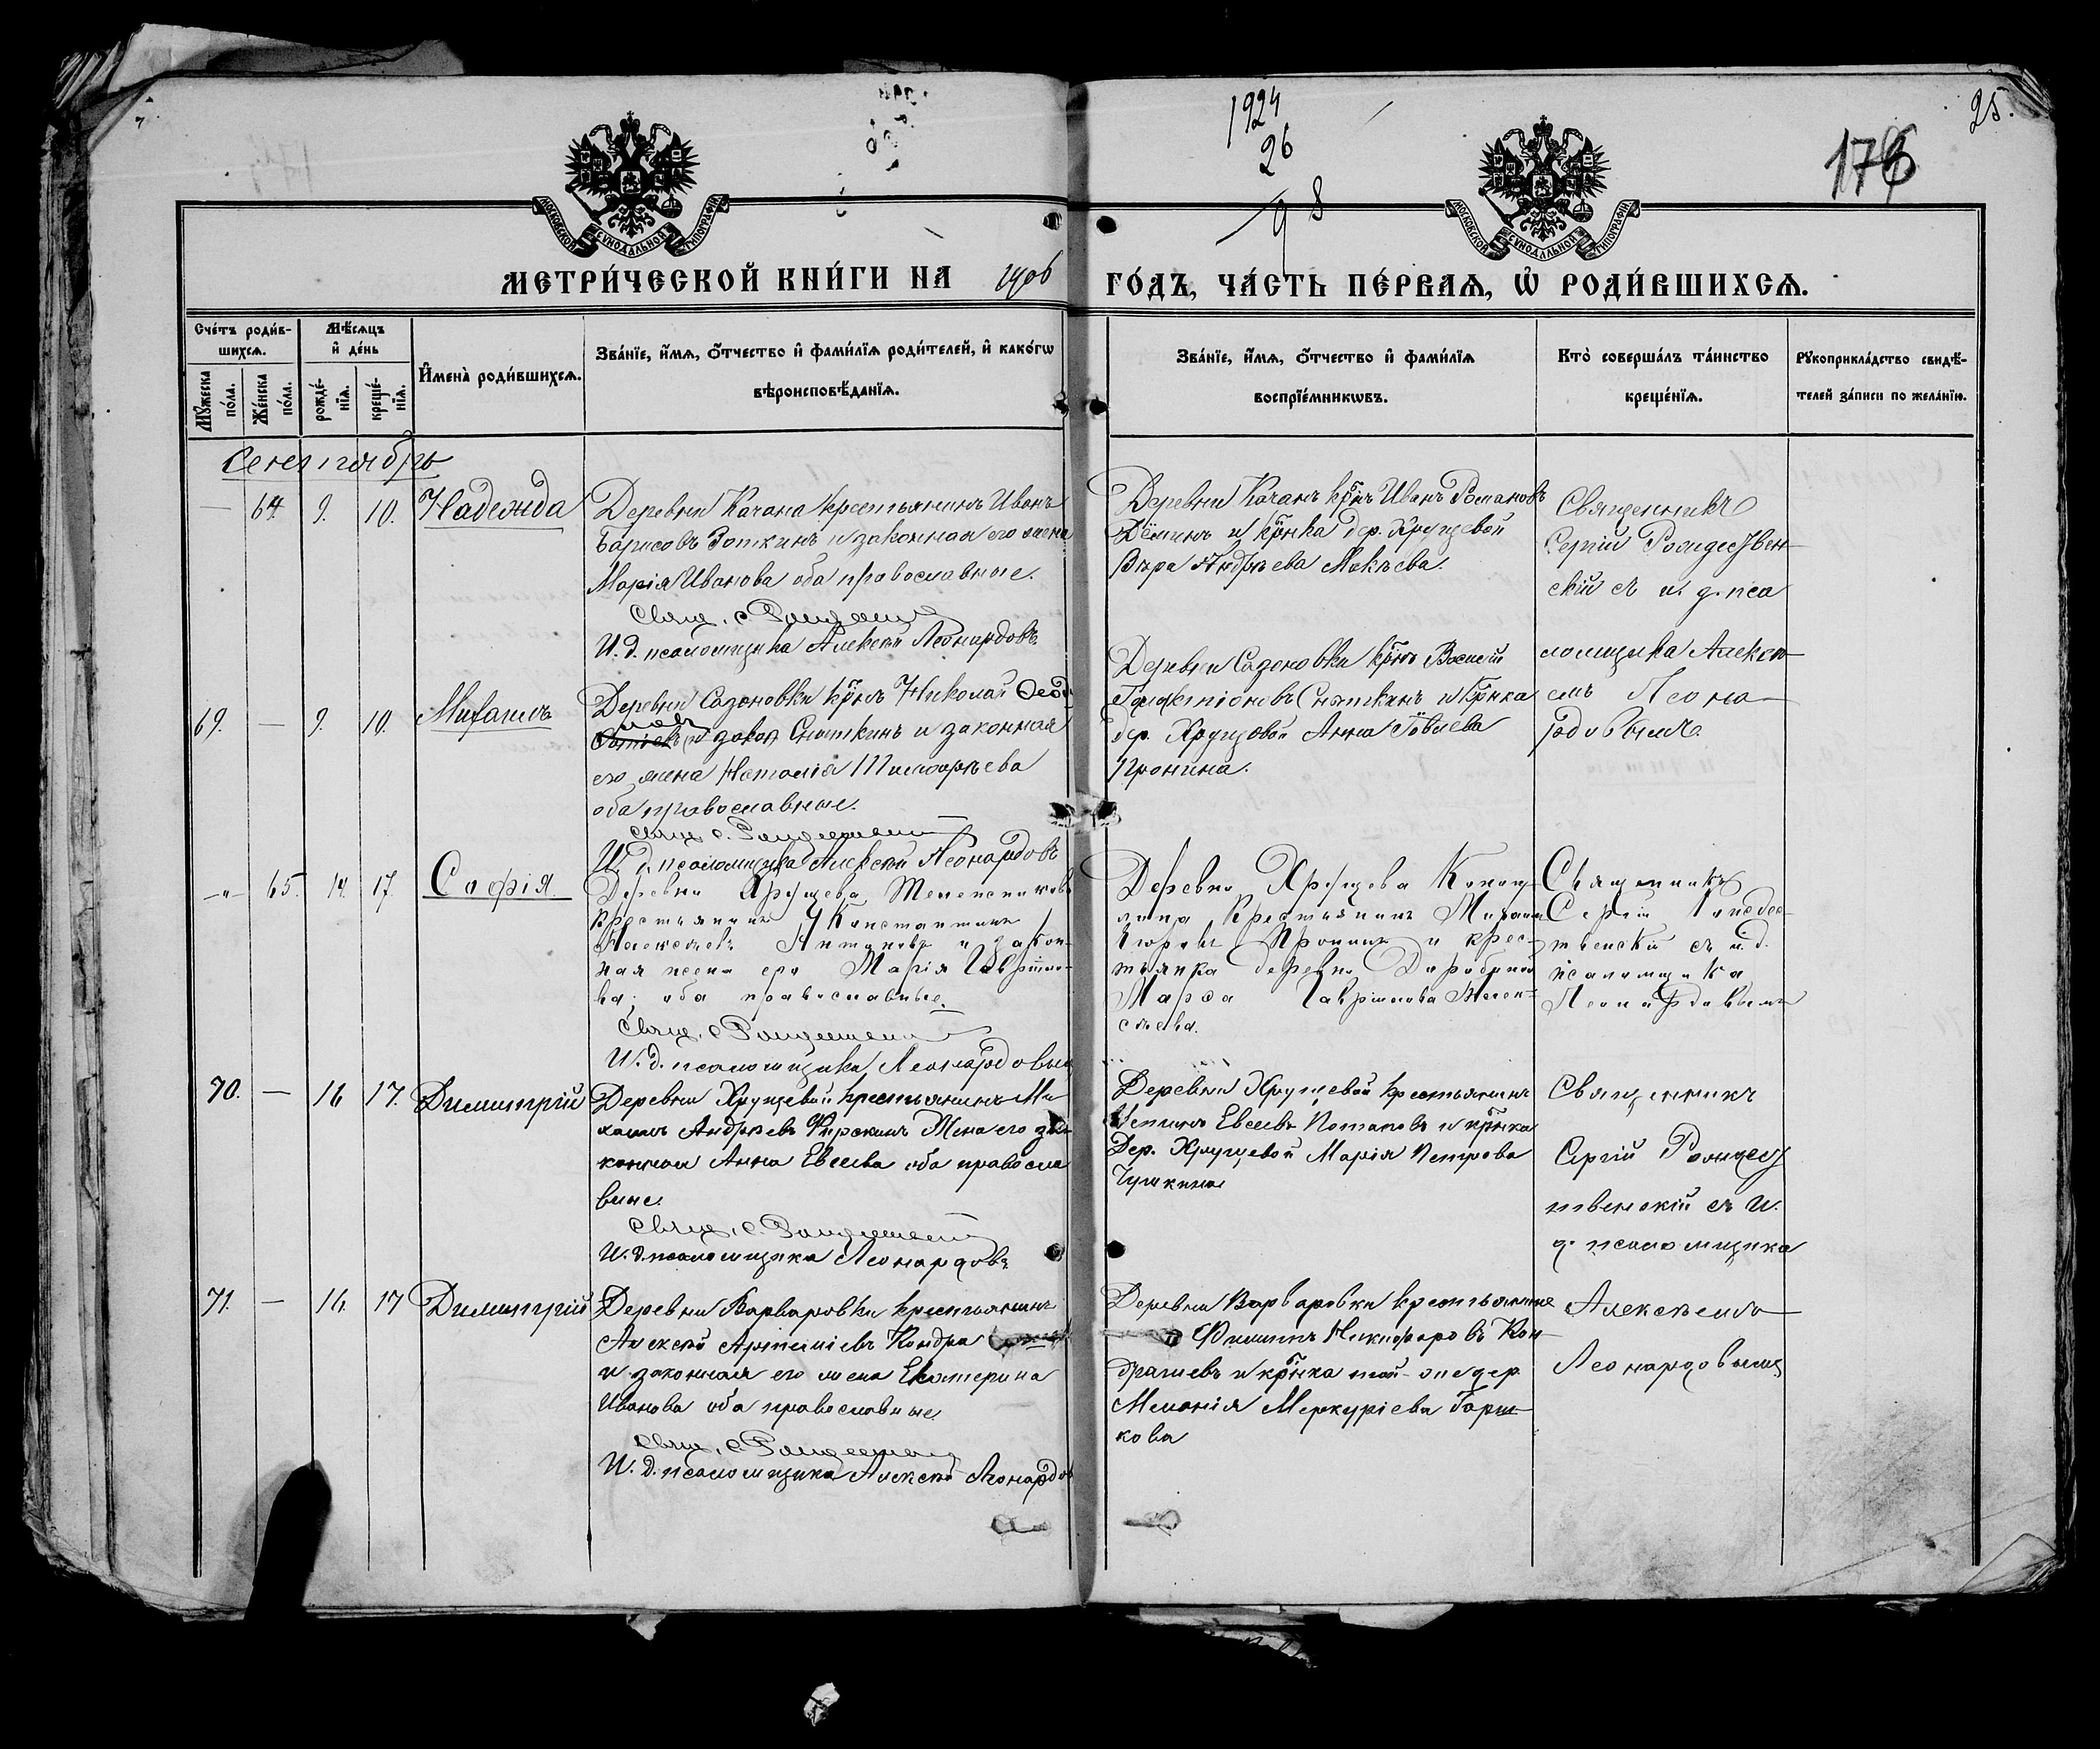 1924
26
98
25.
176
МОСКОВСКОЙ СѴНОДАЛЬНОЙ ТИПОГРАФІИ
МОСКОВСКОЙ СѴНОДАЛЬНОЙ ТИПОГРАФІИ
МЕТРИ́ЧЕСКОЙ КНИ́ГИ НА 1906 ГО́ДЪ, ЧА́СТЬ ПЕ́РВАѦ, Ѡ҆ РОДИ́ВШИХСѦ.
Сче́тъ роди́в-
шихсѧ.
Мꙋ́жеска по́ла.
Же́нска по́ла.
Мѣ́сѧцъ
и҆ де́нь
рожде́-
нїѧ.
креще́-
нїѧ.
И҆мена̀ роди́вшихсѧ.
Зва́нїе, и҆́мѧ, ѻ҆́тчество и҆ фами́лїѧ роди́телей, и҆ како́гѡ
вѣроисповѣ́данїѧ.
Зва́нїе, и҆́мѧ, ѻ҆́тчество и҆ фами́лїѧ
воспрїе́мникѡвъ.
Кто̀ соверша́лъ та́инство
креще́нїѧ.
Рꙋкоприкла́дство свидѣ́-
телей за́писи по жела́нїю.
Сентябрь
— 64. 9. 10. Надежда
Деревни Качана крестьянинъ Иванъ
Борисовъ Зоткинъ и законная его жена
Марія Иванова оба православные.
Свящ. С. Рождественскій
И. д. псаломщика Алексѣй Леонардовъ
Деревни Качанъ кр-нъ Иванъ Романовъ
Дёминъ и кр-нка дер. Хрущевой
Вѣра Андрѣева Макѣева.
Священникъ
Сергій Рождествен-
скій съ и. д. пса
ломщика Алексѣ-
емъ Леона-
рдовымъ
69. — 9. 10. Михаилъ
Деревни Сазоновки кр-нъ Николай
Снаткинъ и законная
его жена Наталія Тимофѣева
оба православные.
Свящ. С. Рождественскій
И. д. псаломщика Алексѣй Леонардовъ
Деревни Сазоновки кр-нъ Василій
Снаткинъ и кр-нка
дер. Хрущовой Анна
Пронина.
-"- 65. 14. 17. Софія
Деревни Хрущева
крестьянинъ Константинъ
Алексѣевъ и закон-
ная жена его Марія Гаврило-
ва; оба православные.
Свящ. С. Рождественскій
И. д. псаломщика Леонардовъ
Деревни Хрущева
крестьянинъ Михаилъ
Пронинъ и крес-
тьянка деревни
Марѳа Гаврилова Алек-
сѣева.
Священникъ
Сергій Рождес-
твенскій съ и. д.
псаломщика
Леонардовымъ
70. — 16 17. Димитрій
Деревни Хрущевой крестьянинъ Ми
хаилъ Андрѣевъ Фирскинъ Жена его за-
конная Анна Евсеева оба правосла
вные.
Свящ. С. Рождественскій
И. д. псаломщика Леонардовъ
Деревни Хрущевой крестьянинъ
Устинъ Евсеевъ Потаповъ и кр-нка
Дер. Хрущевой Марія Петрова
Чушкина
Священникъ
Сергій Рождес
твенскій съ и.
д. псаломщика
Алексѣемъ
Леонардовымъ
71. — 16. 17 Димитрій
Деревни Варваровки крестьянинъ
Алексѣй Артеміевъ Кондра
и законная его жена Екатерина
Иванова оба православные
Свящ. С. Рождественскій
И. д. псаломщика Алексѣй Леонардов
Деревни Варваровки крестьянинъ
Филиппъ Никифоровъ Кон-
драшевъ и кр-нка той-же дер.
Меланія Меркуріева Горш-
кова